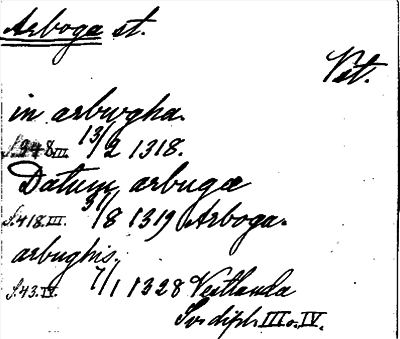 Arboga st.
Vst.
in arbwgha.
S. 248. III. 13/2 1318.
Datum arbugæ
S. 418. III. 31/8 1319 Arboga.
arbughis.
S. 43. IV. 7/1 1328 Vestlanda
Sv. dipl. III o. IV.